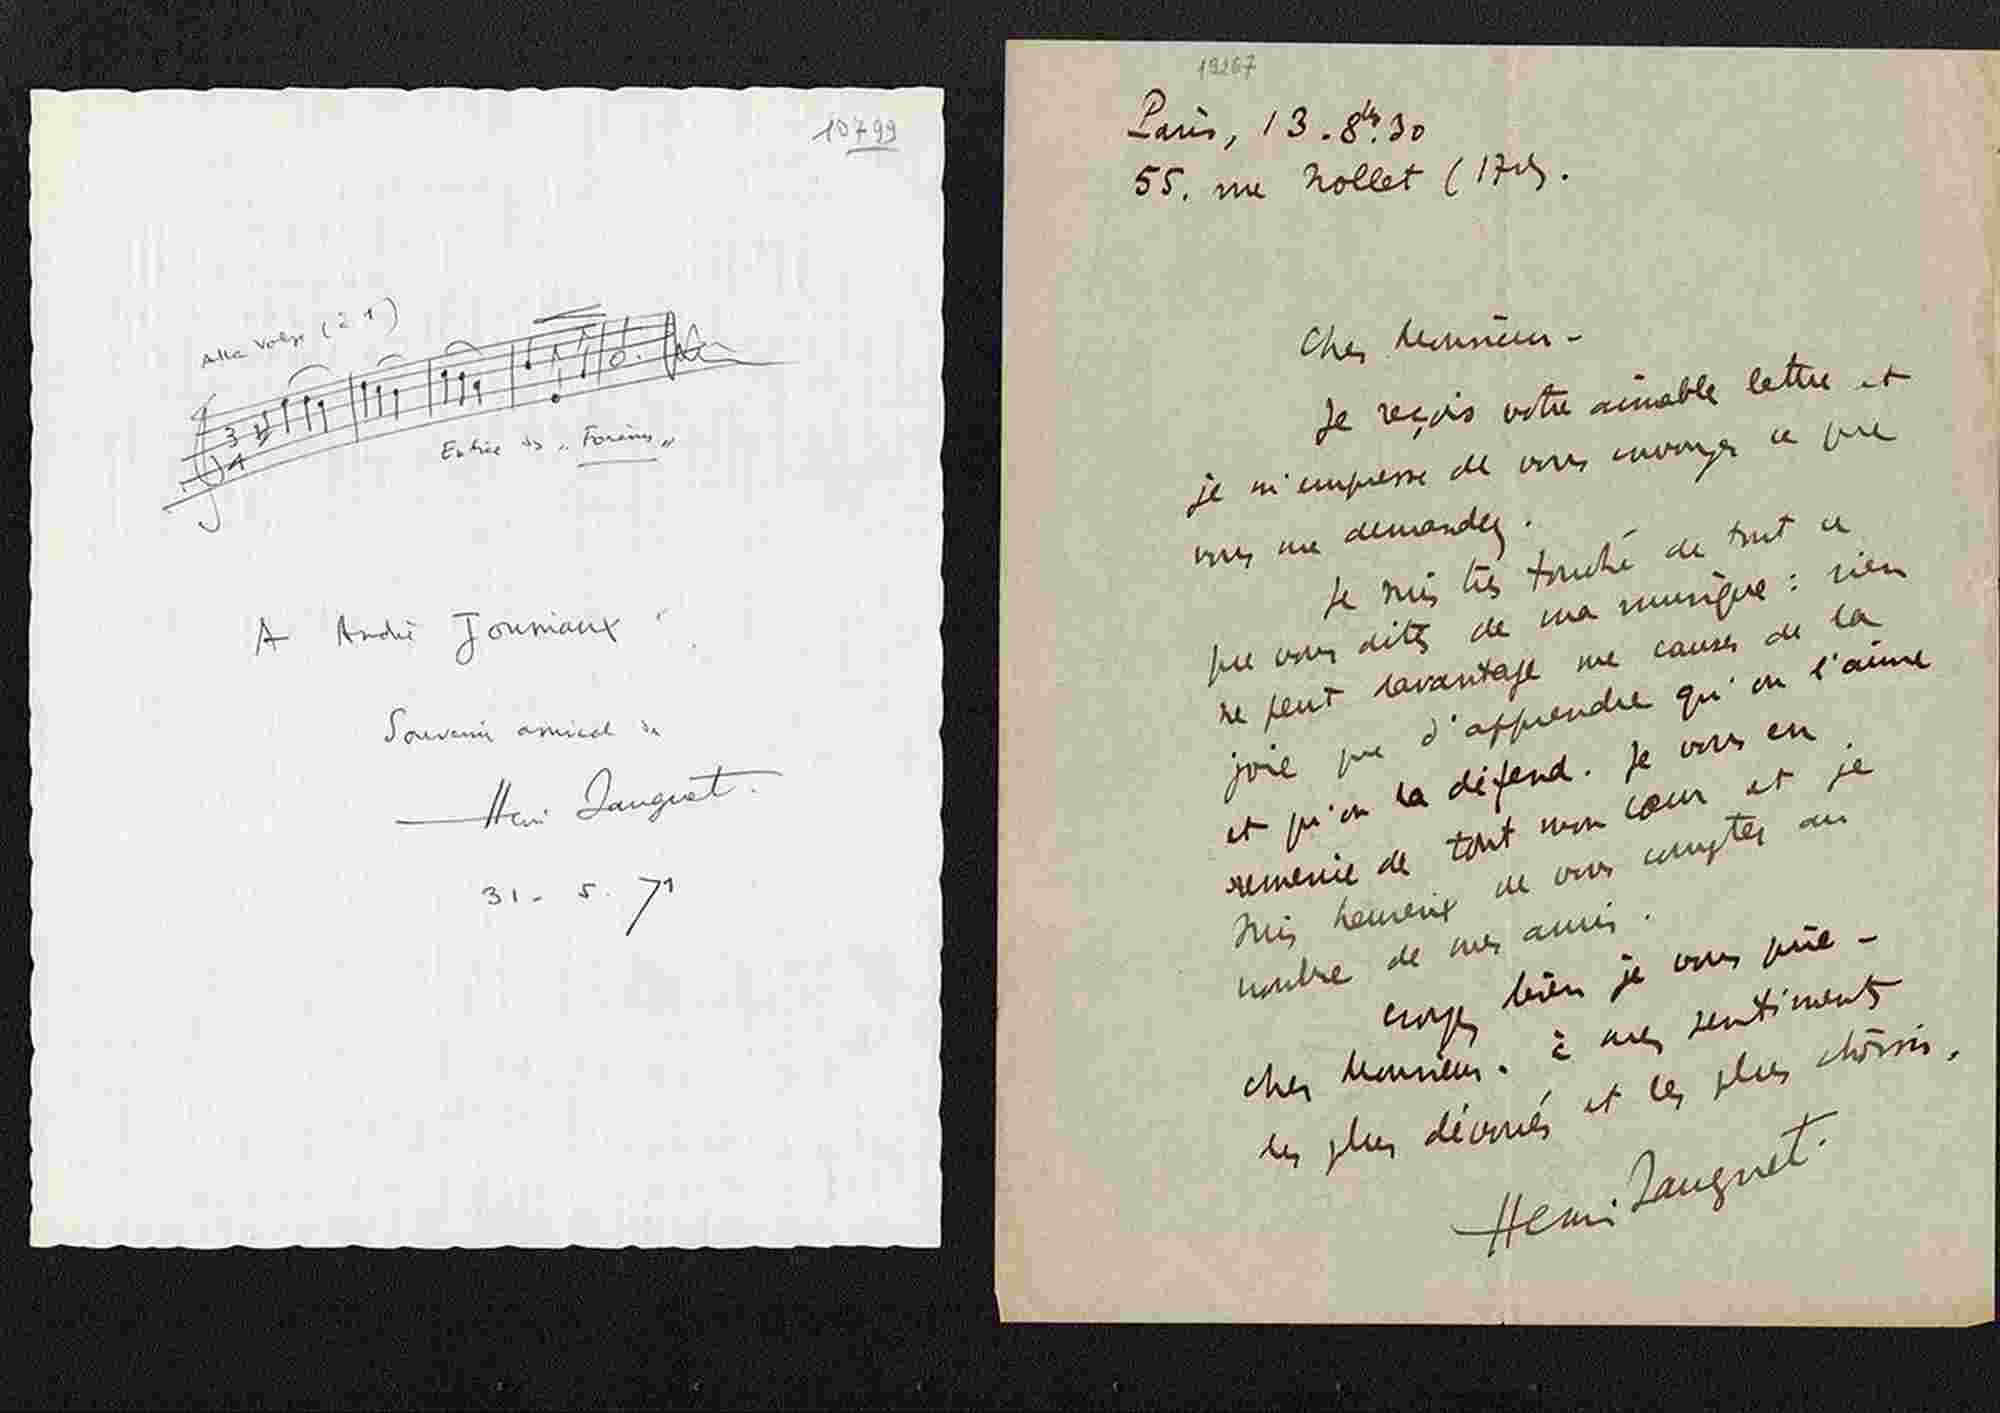 10799
Alla Valse (à 1)
3
4
Entrée des "Forains"
A André Jouniaux
Souvenir amical de
Henri Sauguet.
31 - 5. 71
19267
Paris, 13. 8bre. 30
55. rue Nollet (17e).
Cher Monsieur -
Je reçois votre aimable lettre et
je m'empresse de vous envoyer ce que
vous me demandez.
Je suis très touché de tout ce
que vous dites de ma musique : rien
ne peut davantage me causer de la
joie que d'apprendre qu'on l'aime
et qu'on la défend. Je vous en
remercie de tout mon cœur et je
suis heureux de vous compter au
nombre de mes amis.
Croyez bien je vous prie -
cher Monsieur. à mes sentiments
les plus dévoués et les plus choisis.
Henri Sauguet.